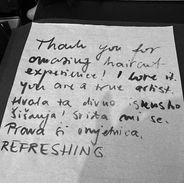 Thank you for
amazing haircut
experience! I love it.
you are a true artist.
Hvala ta divno iskustvo
šišanja! Sviđa mi se.
Pravа si umjetnica.
REFRESHING